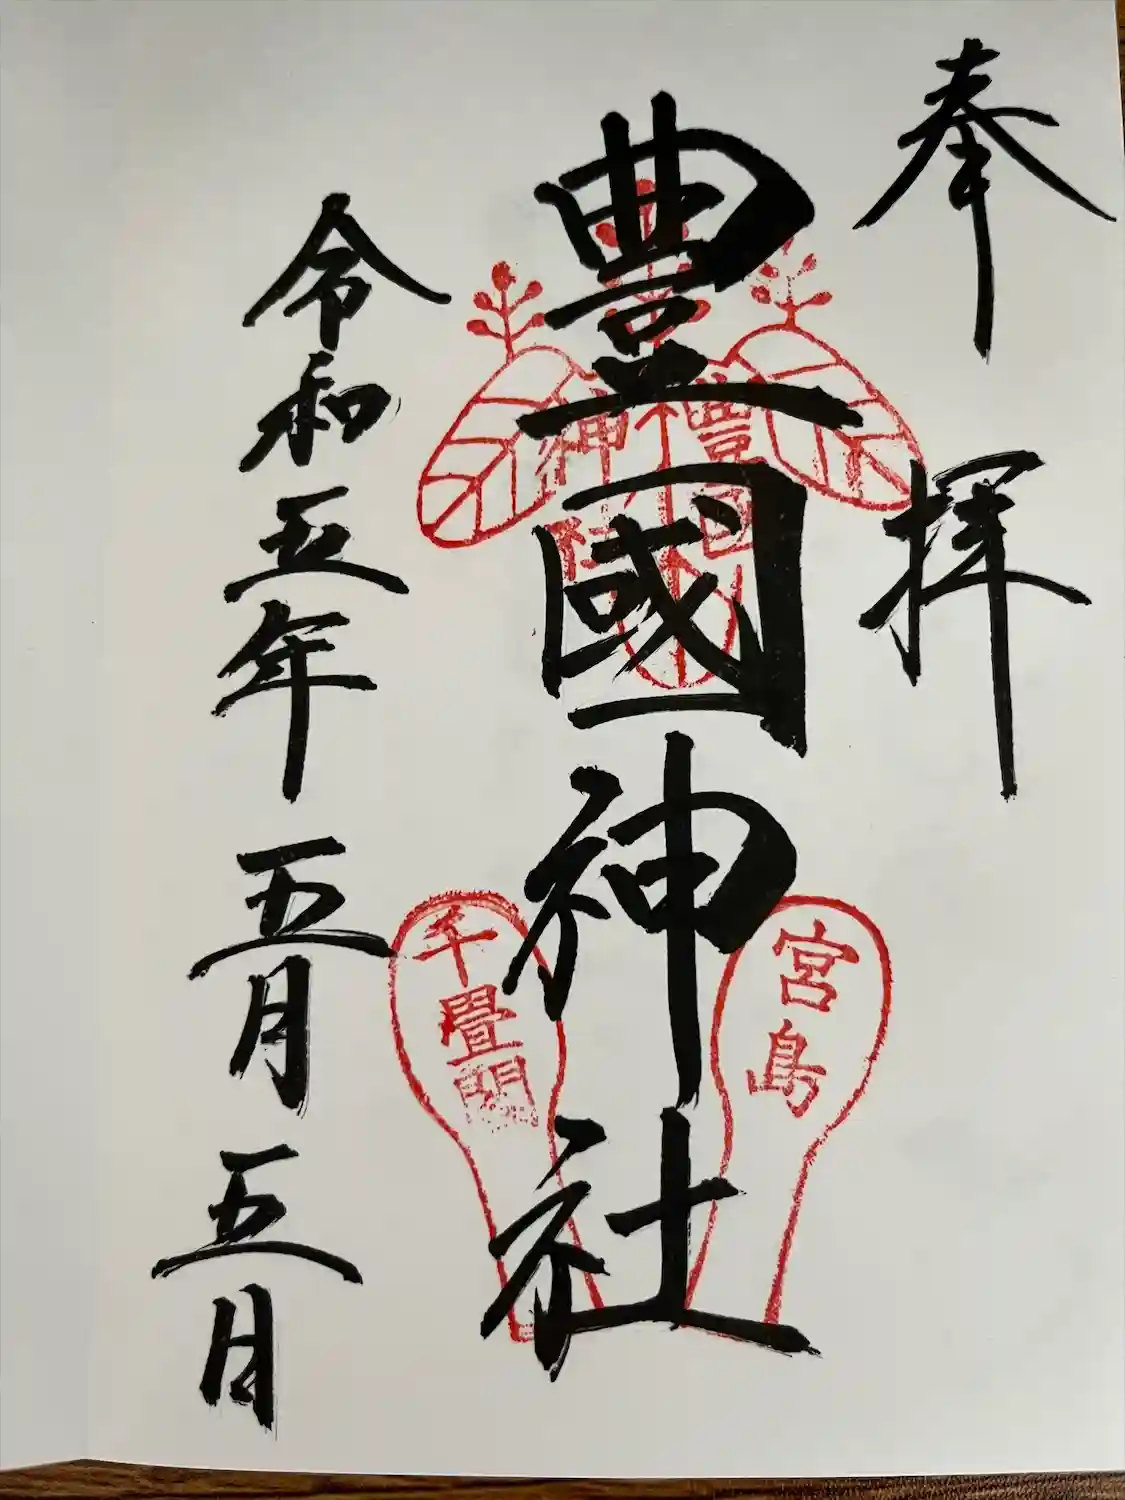 奉拝
豊國神社
豊国
神社
宮島
千畳閣
令和五年五月五日